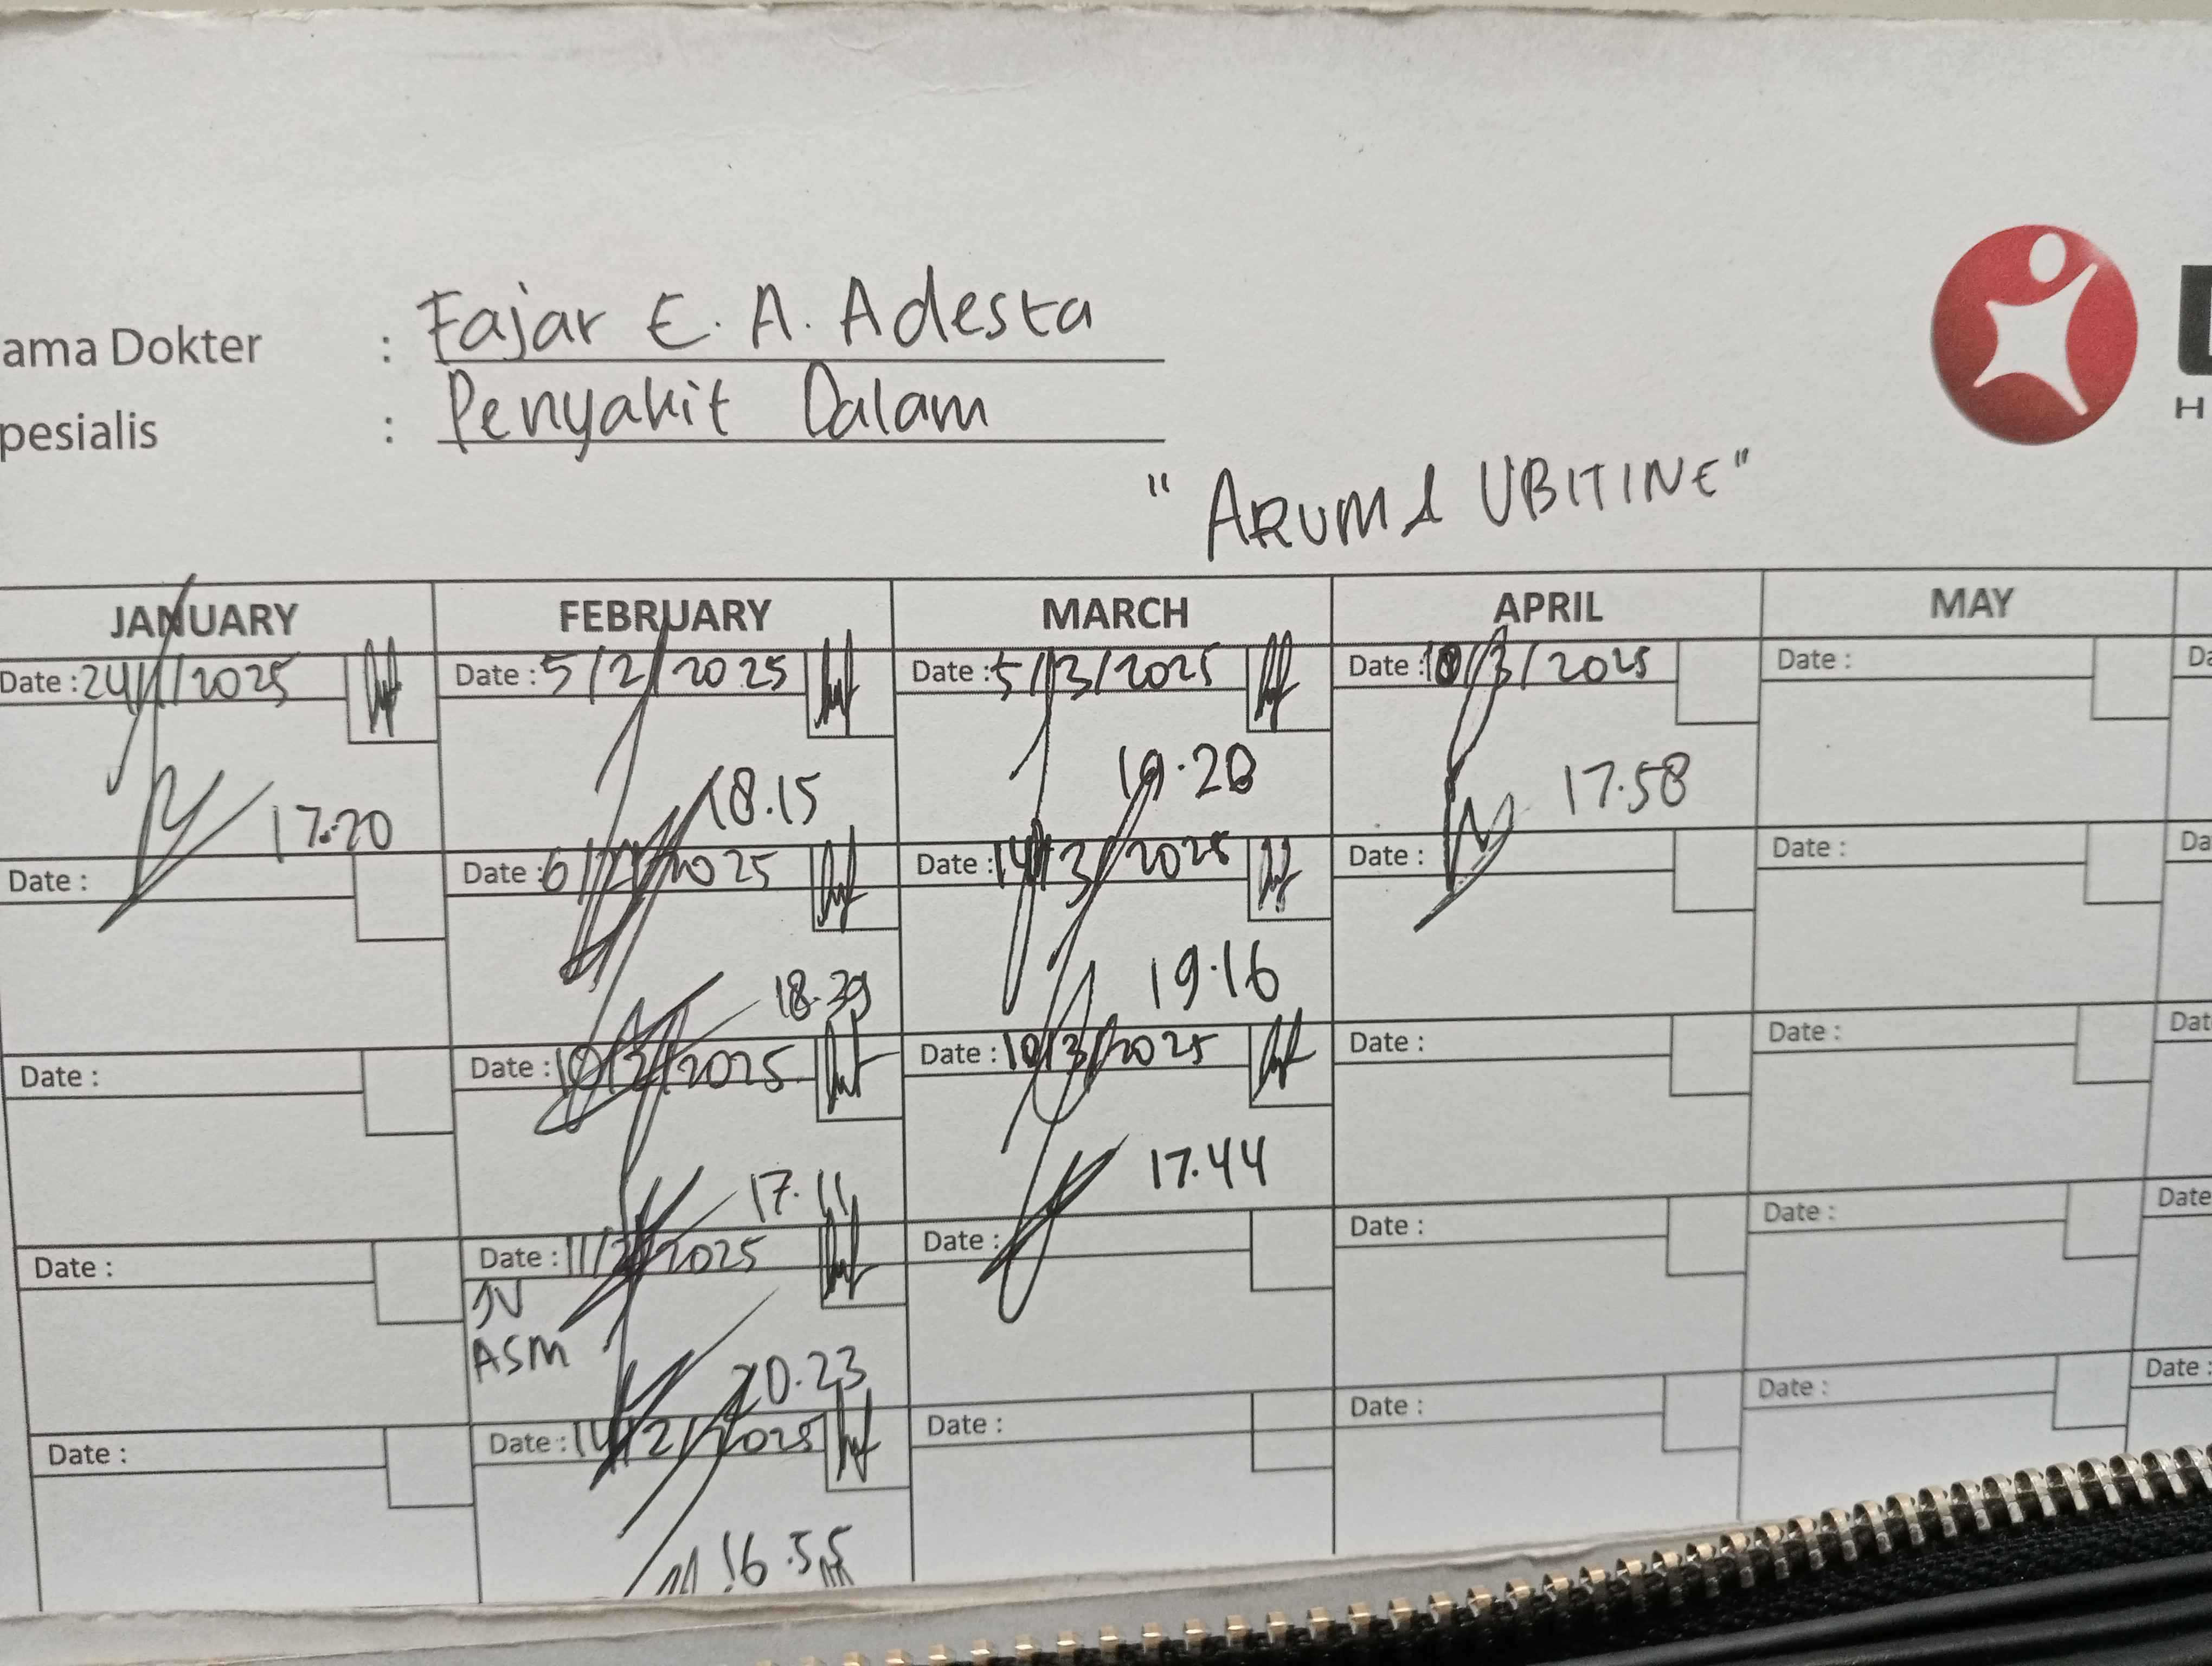 ama Dokter : Fajar E. A. Adesta
pesialis : Penyakit Dalam
H
"ARUM & UBITINE"
JANUARY FEBRUARY MARCH APRIL MAY
Date : 24/1/2025 Date : 5/2/2025 Date : 5/3/2025 Date : /3/2025 Date : Da
17.20 18.15 19.20 17.58
Date : Date : 6/2/2025 Date : 14/3/2025 Date : Date : Da
18.39 19.16
Date : Date : 10/2/2025 Date : 10/3/2025 Date : Date : Dat
17.11 17.44
Date : Date : 11/2/2025 Date : Date : Date : Date
JV
ASM
20.23
Date : Date : 14/2/2025 Date : Date : Date : Date :
16.55